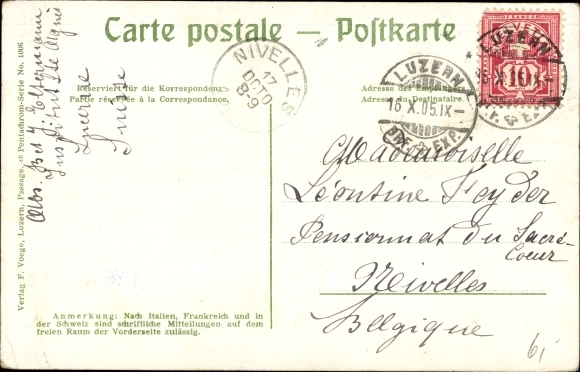 Carte postale — Postkarte
Reserviert für die Korrespondenz.
Partie réservée à la Correspondance.
Adresse des Empfängers
Adresse du Destinataire.
NIVELLES
17
OCTO
8-9
LUZERN
16.X.05.IX-
BRF. EXP.
FRANCO
HELVETIA
10
LUZERN
Mademoiselle
Léontine Feyder
Pensionnat du Sacré-
Coeur
Nivelles
Belgique
Abs.
Institut Ste Agnès
Lucerne
Suisse
Verlag F. Voege, Luzern, Passage, Pentachrom-Serie No. 1006
Anmerkung: Nach Italien, Frankreich und in
der Schweiz sind schriftliche Mitteilungen auf dem
freien Raum der Vorderseite zulässig.